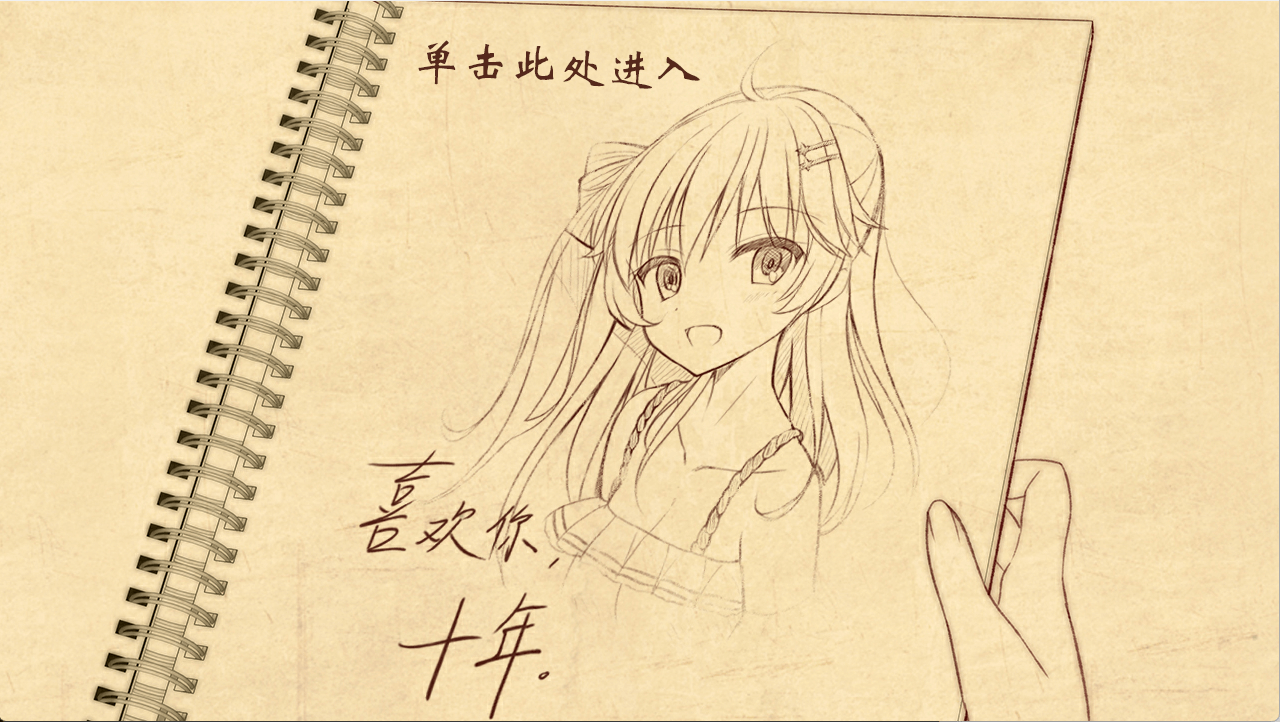 单击此处进入
喜欢你,
十年。